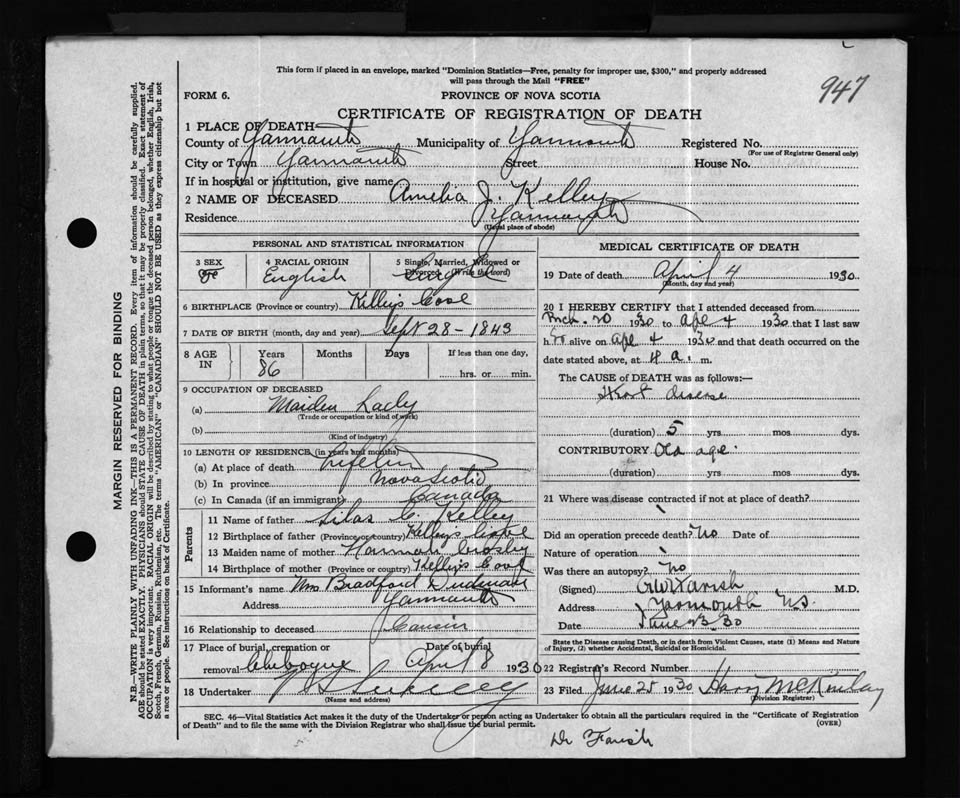 This form if placed in an envelope, marked "Dominion Statistics—Free, penalty for improper use, $300," and properly addressed
will pass through the Mail "FREE"
947
FORM 6.
PROVINCE OF NOVA SCOTIA
CERTIFICATE OF REGISTRATION OF DEATH
1 PLACE OF DEATH—
County of Yarmouth Municipality of Yarmouth Registered No.
(For use of Registrar General only)
City or Town Yarmouth Street House No.
If in hospital or institution, give name
2 NAME OF DECEASED Amelia J. Kelley
Residence Yarmouth
(Usual place of abode)
PERSONAL AND STATISTICAL INFORMATION
3 SEX F
4 RACIAL ORIGIN English
5 Single, Married, Widowed or Divorced (Write the word) Single
6 BIRTHPLACE (Province or country) Kelley's Cove
7 DATE OF BIRTH (month, day and year) Sept 28 - 1843
8 AGE IN Years 86 Months Days If less than one day, hrs. or min.
9 OCCUPATION OF DECEASED
(a) Maiden Lady
(Trade or occupation or kind of work)
(b)
(Kind of industry)
10 LENGTH OF RESIDENCE (in years and months)
(a) At place of death Lifetime
(b) In province Nova Scotia
(c) In Canada (if an immigrant) Canada
Parents
11 Name of father Silas C. Kelley
12 Birthplace of father (Province or country) Kelley's Cove
13 Maiden name of mother Hannah Crosby
14 Birthplace of mother (Province or country) Kelley's Cove
15 Informant's name Mrs Bradford
Address Yarmouth
16 Relationship to deceased Cousin
17 Place of burial, cremation or removal Chebogue Date of burial April 8 1930
18 Undertaker
(Name and address)
MEDICAL CERTIFICATE OF DEATH
19 Date of death April 4 1930
(Month, day and year)
20 I HEREBY CERTIFY that I attended deceased from
Mch. 20 1930 to Apl 4 1930 that I last saw
h er alive on Apl 4 1930 and that death occurred on the
date stated above, at 4 a. m.
The CAUSE of DEATH was as follows:—
Heart disease
(duration) 5 yrs. mos. dys.
CONTRIBUTORY Old age
(duration) yrs. mos. dys.
21 Where was disease contracted if not at place of death?
Did an operation precede death? No Date of
Nature of operation
Was there an autopsy? No
(Signed) Farish M.D.
Address Yarmouth N.S.
Date June 23 30
State the Disease causing Death, or in death from Violent Causes, state (1) Means and Nature
of Injury, (2) whether Accidental, Suicidal or Homicidal.
22 Registrar's Record Number
23 Filed June 25 1930 Harry McKinlay
(Division Registrar)
SEC. 46—Vital Statistics Act makes it the duty of the Undertaker or person acting as Undertaker to obtain all the particulars required in the "Certificate of Registration
of Death" and to file the same with the Division Registrar who shall issue the burial permit.
(OVER)
Dr Farish
MARGIN RESERVED FOR BINDING
N.B.—WRITE PLAINLY WITH UNFADING INK—THIS IS A PERMANENT RECORD. Every item of information should be carefully supplied.
AGE should be stated EXACTLY. PHYSICIANS should STATE CAUSE OF DEATH in plain terms, so that it may be properly classified. Exact statement of
OCCUPATION is very important. RACIAL ORIGIN will be described by stating to what people or tongue the deceased person belonged, whether English, Irish,
Scotch, French, German, Russian, Ruthenian, etc. The terms "AMERICAN" or "CANADIAN" SHOULD NOT BE USED as they express citizenship but not
a race or people. See instructions on back of Certificate.